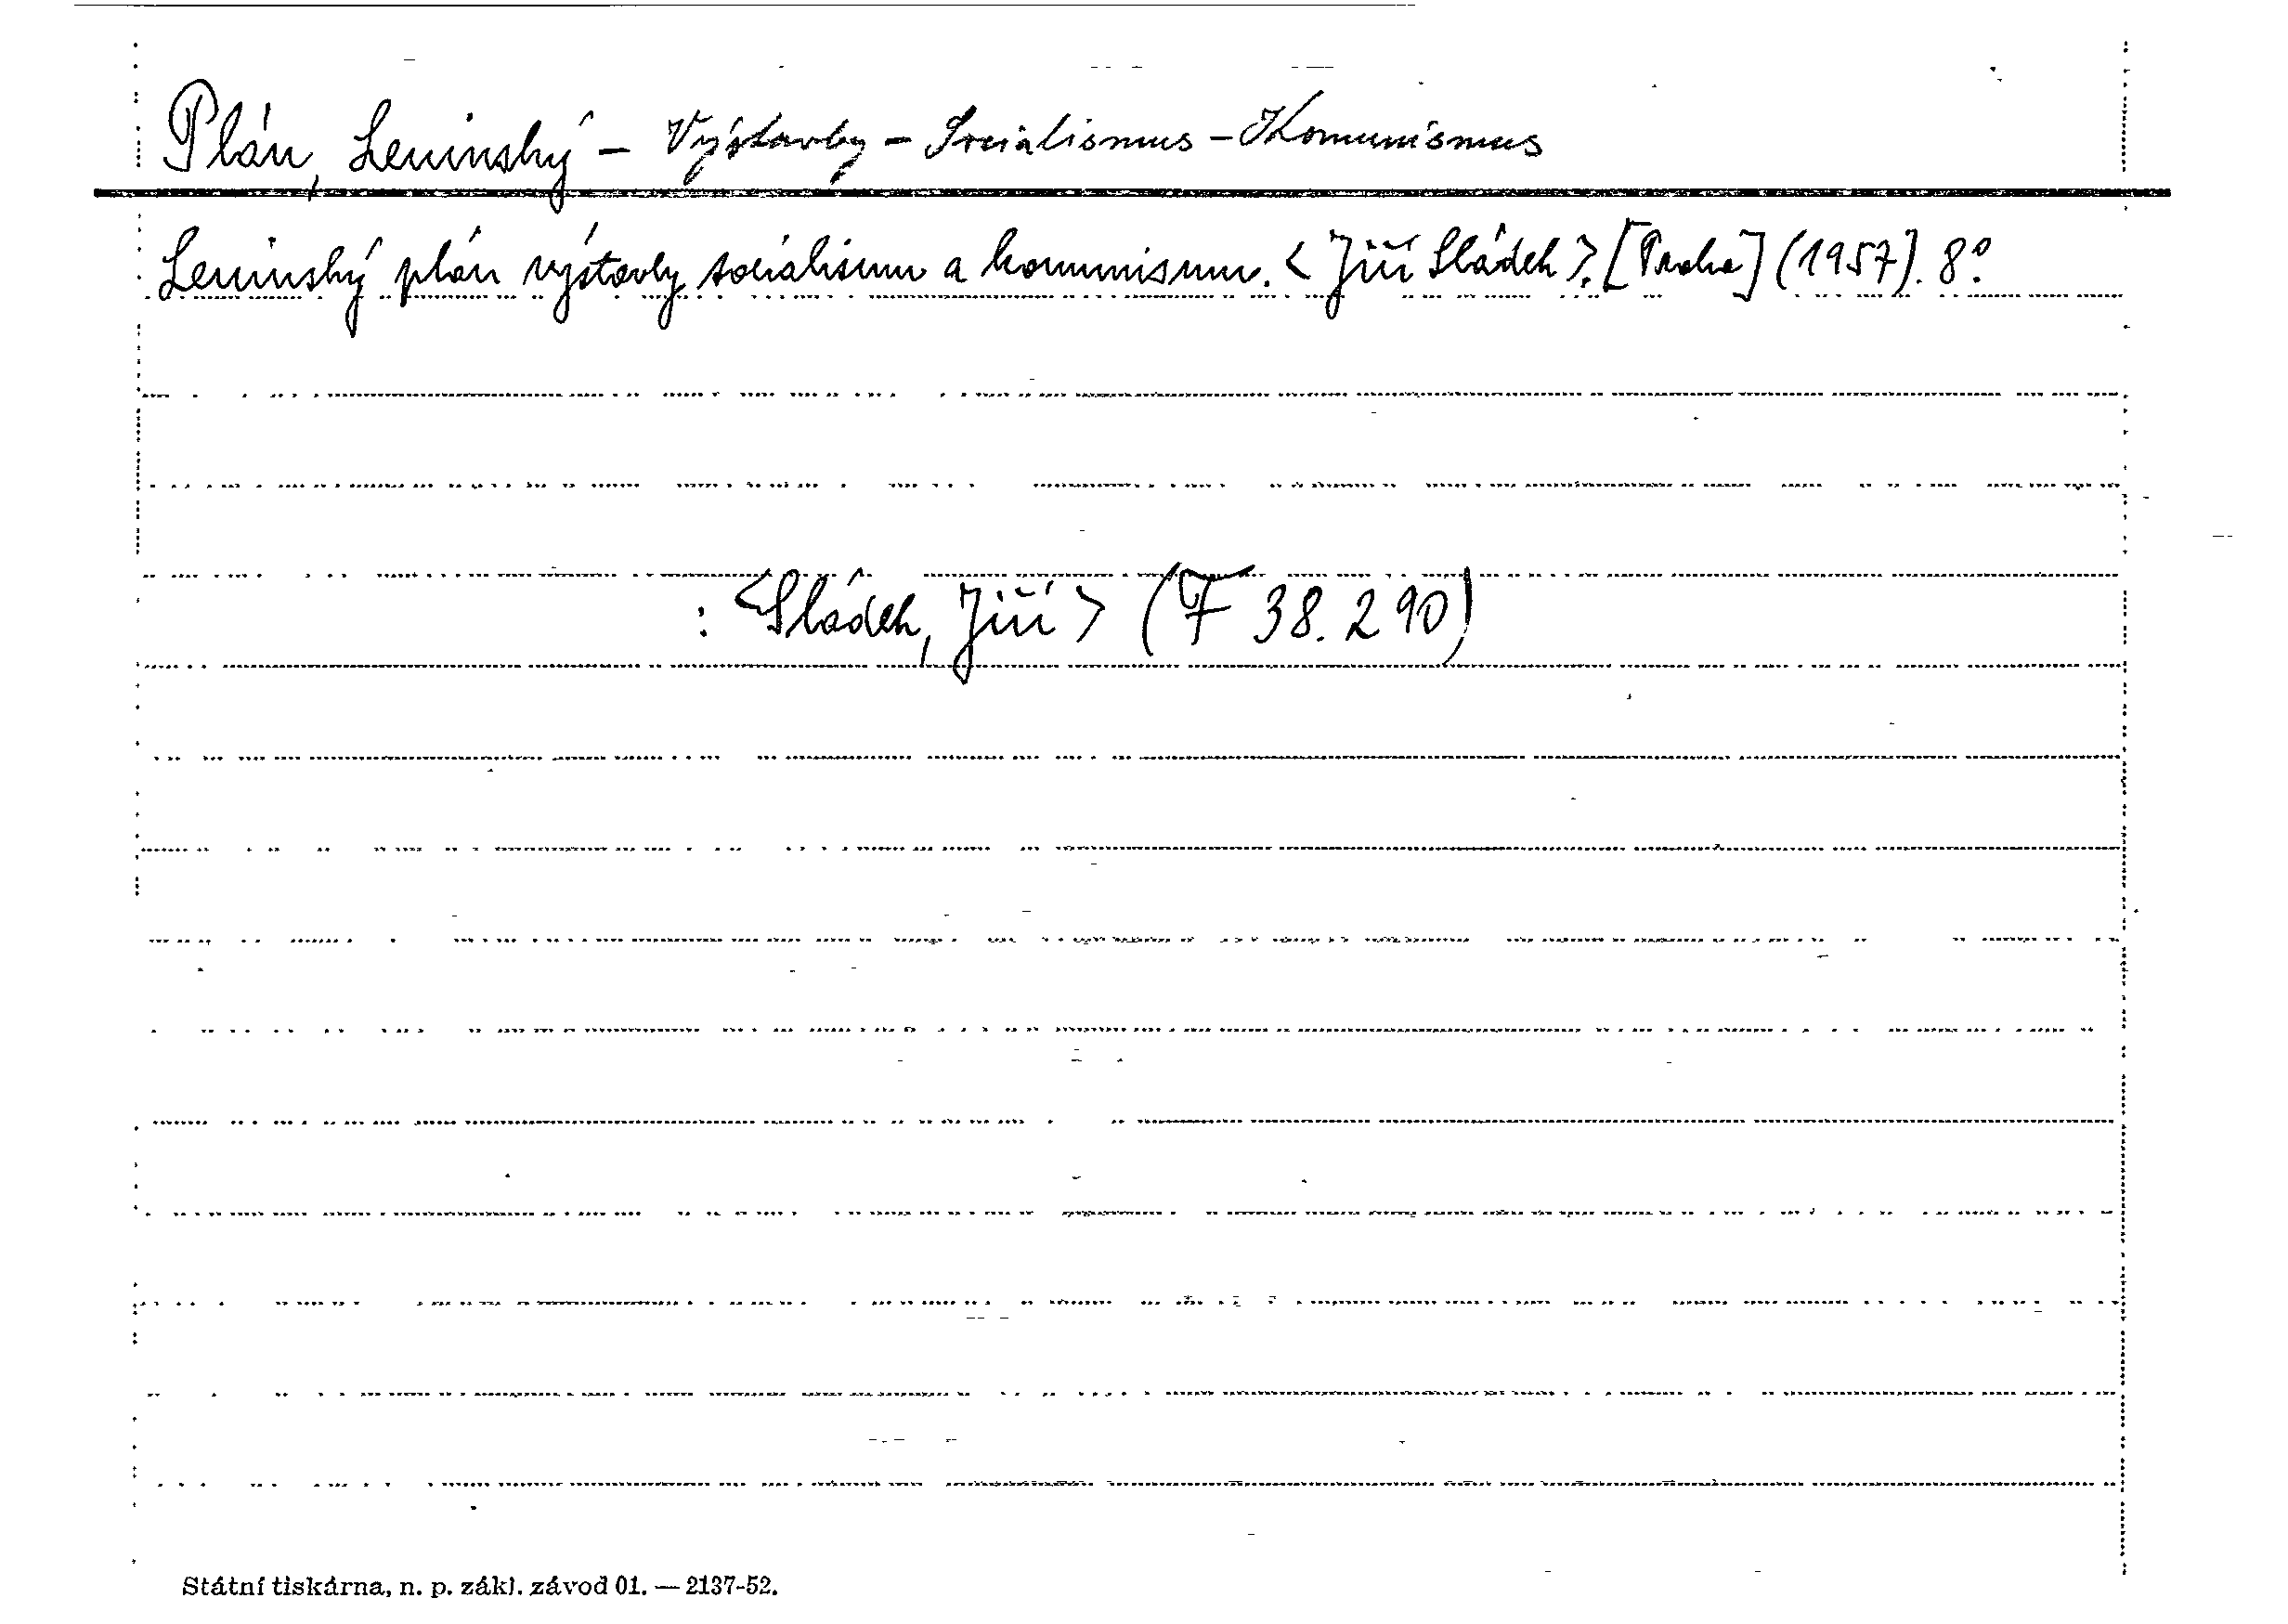 Plán, Leninský – Výstavby – Socialismus – Komunismus
Leninský plán výstavby socialismu a komunismu. < Jiří Sládek >. [Praha] (1957). 8°.
: <Sládek, Jiří> (F 38.290)
Státní tiskárna, n. p. zákl. závod 01. — 2137-52.